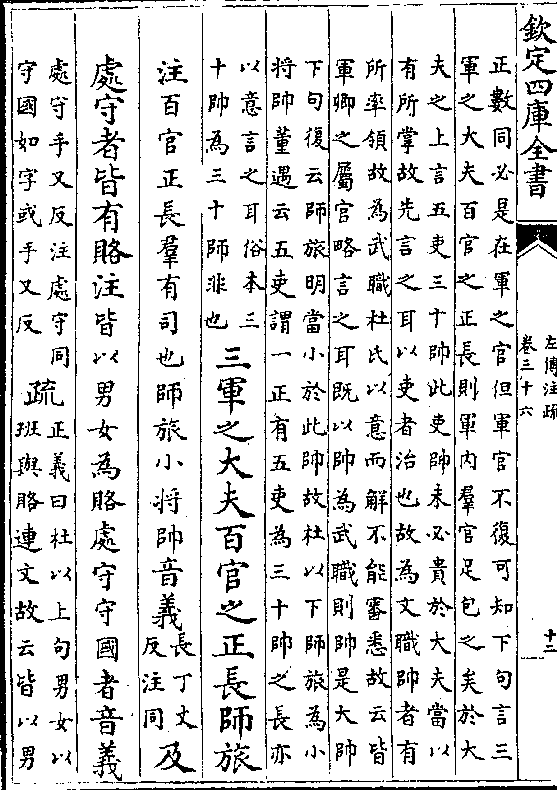 欽定四庫全書
左傳注疏
卷三十六
十三
正數同必是在軍之官但軍官不復可知下句言三
軍之大夫百官之正長則軍内羣官足包之矣於大
夫之上言五吏三十帥此吏帥未必貴於大夫當以
有所掌故先言之耳以吏者治也故為文職帥者有
所率領故為武職杜氏以意而解不能審悉故云皆
軍卿之屬官略言之耳既以帥為武職則帥是大帥
下句復云師旅明當小於此帥故杜以下師旅為小
將帥董遇云五吏謂一正有五吏為三十帥之長亦
以意言之耳俗本三
十帥為三十師非也
三軍之大夫百官之正長師旅
注百官正長羣有司也師旅小將帥音義
長丁丈
反注同
及
處守者皆有賂注皆以男女為賂處守守國者音義
處守手又反注處守同
守國如字或手又反
疏
正義曰杜以上句男女以
班與賂連文故云皆以男